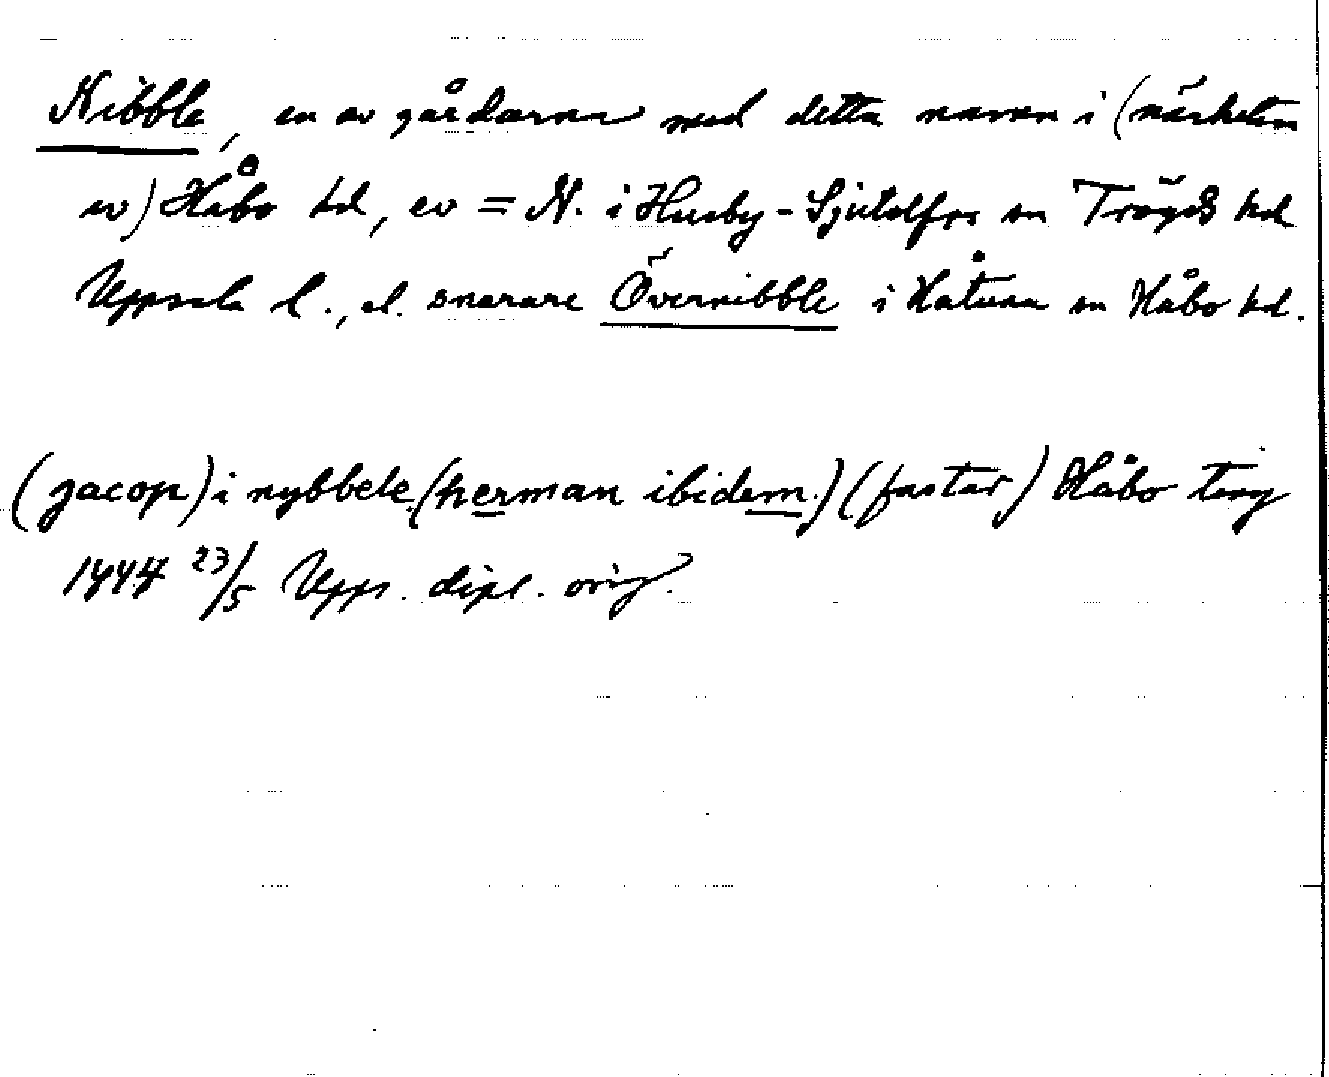 Nibble, en av gårdarna med detta namn i (närheten
av) Håbo hd, ev = N. i Husby-Sjutolfts sn Trögds hd
Uppsala l., el. snarare Övernibble i Håtuna sn Håbo hd.
(jacop) i nybbele (herman ibidem.) (fastar) Håbo ting
1444 23/5 Upps. dipl. orig.